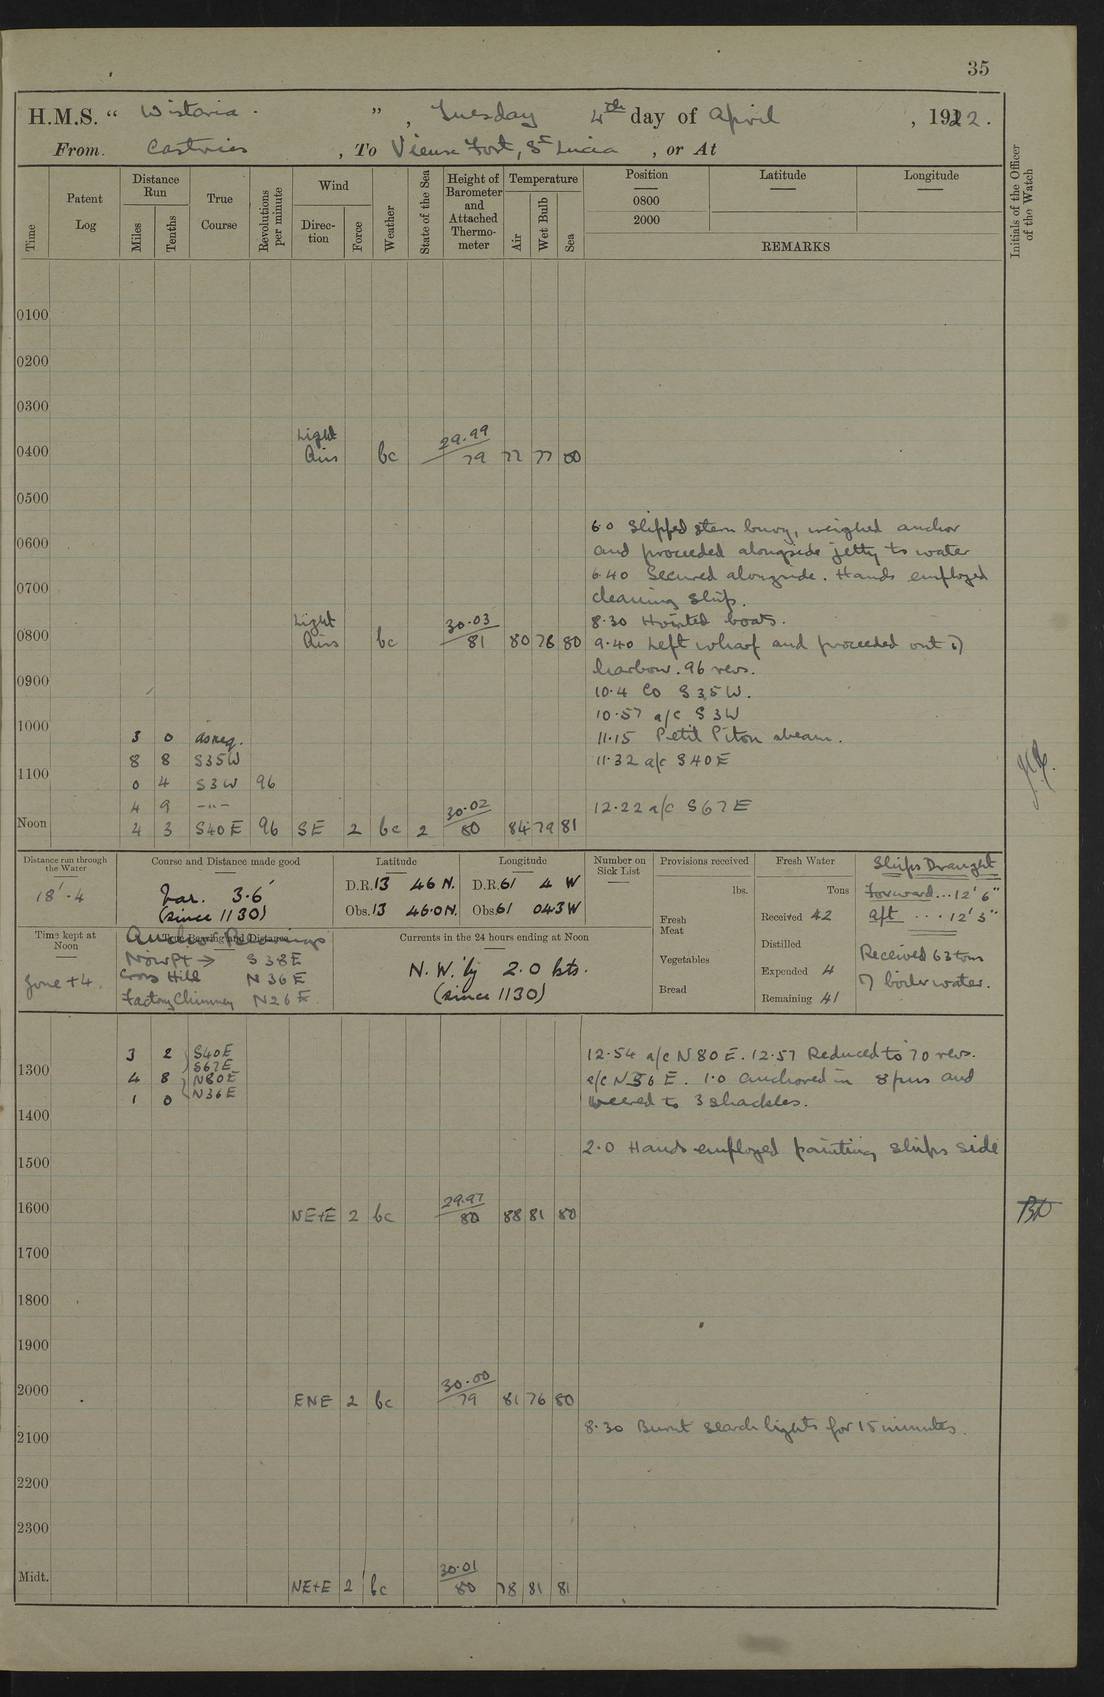 35
H.M.S. “ Wistaria. ” , Tuesday 4th day of April , 1922.
From Castries , To Vieux Fort, St Lucia , or At
Time
Patent Log
Distance Run
Miles
Tenths
True Course
Revolutions per minute
Wind
Direction
Force
Weather
State of the Sea
Height of Barometer and Attached Thermometer
Temperature
Air
Wet Bulb
Sea
Position
0800
2000
Latitude
Longitude
REMARKS
Initials of the Officer of the Watch
0100
0200
0300
0400 Light Airs bc 29.99 79 77 77 80
0500
6.0 Slipped stern buoy, weighed anchor
0600 and proceeded alongside jetty to water
6.40 Secured alongside. Hands employed
0700 cleaning ship.
8.30 Hoisted boats.
0800 Light Airs bc 30.03 81 80 76 80 9.40 Left wharf and proceeded out of
harbour. 96 revs.
0900
10.4 Co S35W.
10.57 a/c S3W
1000 3 0 as req. 11.15 Petit Piton abeam.
8 8 S35W 11.32 a/c S40E
1100 0 4 S3W 96
4 9 -"- 12.22 a/c S67E
Noon 4 3 S40E 96 SE 2 bc 2 30.02 80 84 79 81
Distance run through the Water
18'.4
Course and Distance made good
3.6'
(since 1130)
Latitude
D.R. 13 46 N.
Obs. 13 46.0 N.
Longitude
D.R. 61 4 W
Obs. 61 04.3 W
Number on Sick List
Provisions received
lbs.
Fresh Meat
Vegetables
Bread
Fresh Water
Tons
Received 42
Distilled
Expended 4
Remaining 41
Ships Draught
Forward...12' 6"
Aft....12' 3"
Received 63 tons
of boiler water.
Time kept at Noon
Zone +4.
True Bearing and Distance
Anchor Bearings
S 38 E
Cross Hill N 36 E
Factory Chimney N 26 E
Currents in the 24 hours ending at Noon
N.W.'ly 2.0 kts.
(since 1130)
3 2 S40E S67E 12.54 a/c N80E. 12.57 Reduced to 70 revs.
1300 4 8 N80E a/c N36E. 1.0 anchored in 8 fms and
1 0 N36E veered to 3 shackles.
1400
2.0 Hands employed painting ships side
1500
1600 NE+E 2 bc 29.97 80 88 81 80
1700
1800
1900
2000 ENE 2 bc 30.00 79 81 76 80
8.30 Burnt search lights for 15 minutes.
2100
2200
2300
Midt. NE+E 2 bc 30.01 80 78 81 81